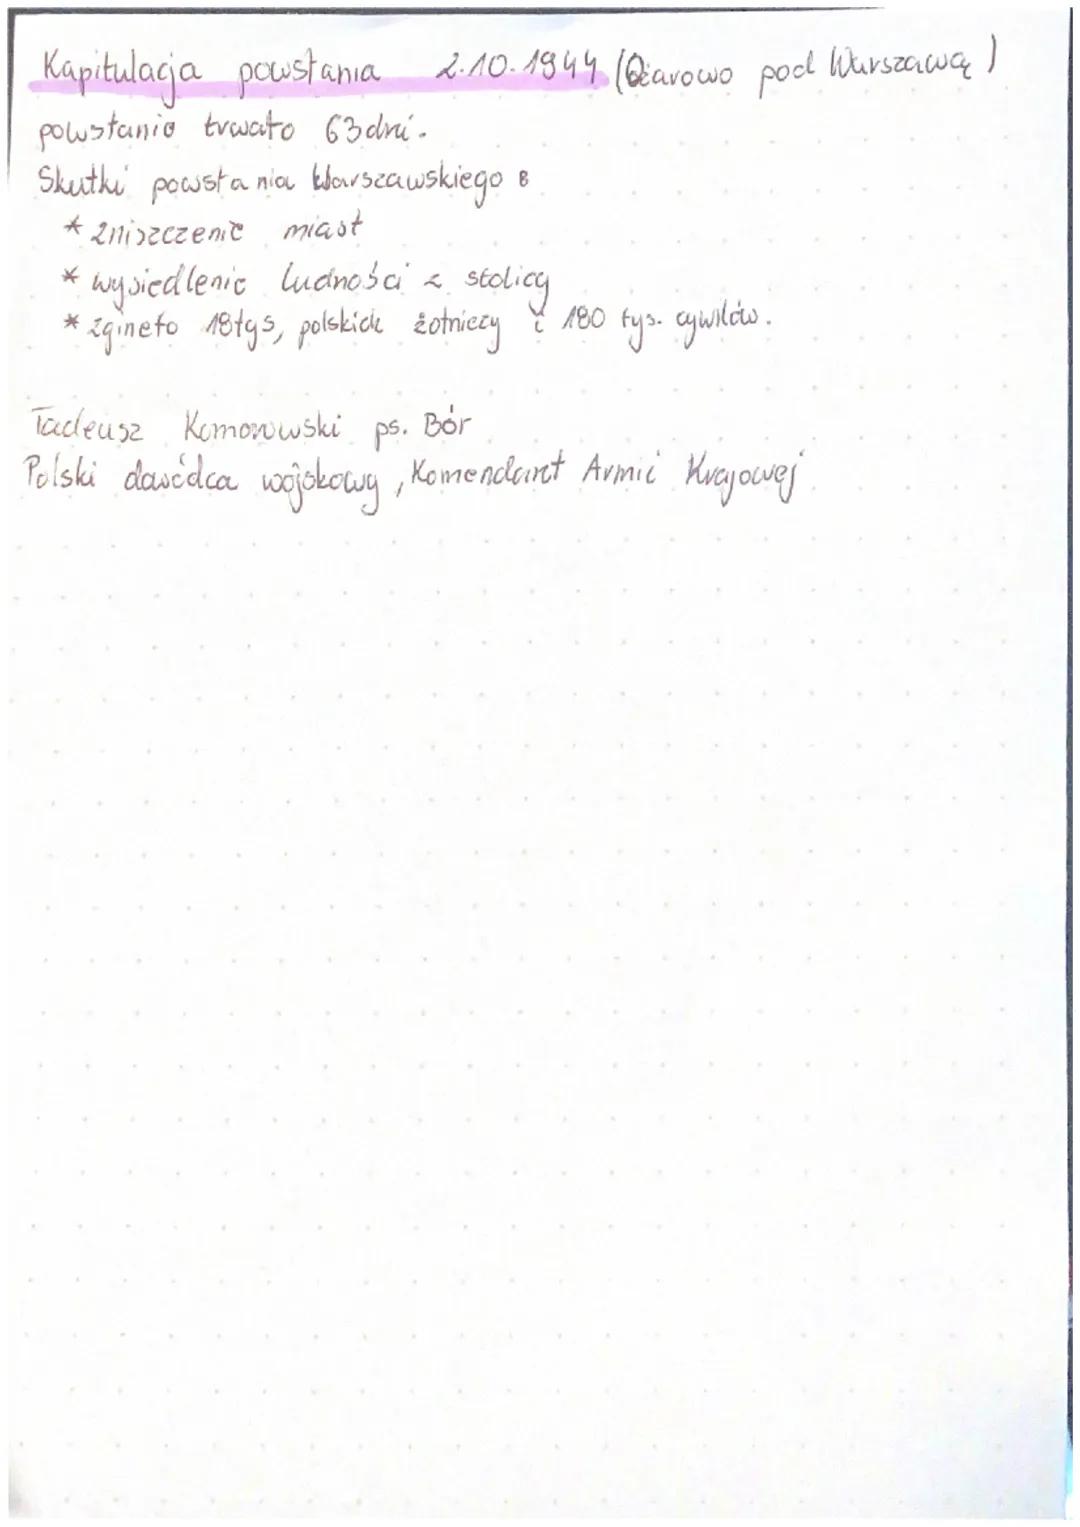 Kapitulacja powstania 2.10.1944 (Ożarowo pod Warszawą)
powstanie trwało 63 dni.
Skutki powstania Warszawskiego:
* zniszczenie miast
* wysiedlenie ludności z stolicy
* zgineło 18tys, polskich żołnierzy i 180 tys. cywilów.
Tadeusz Komorowski ps. Bór
Polski dawódca wojskowy, Komendant Armii Krajowej